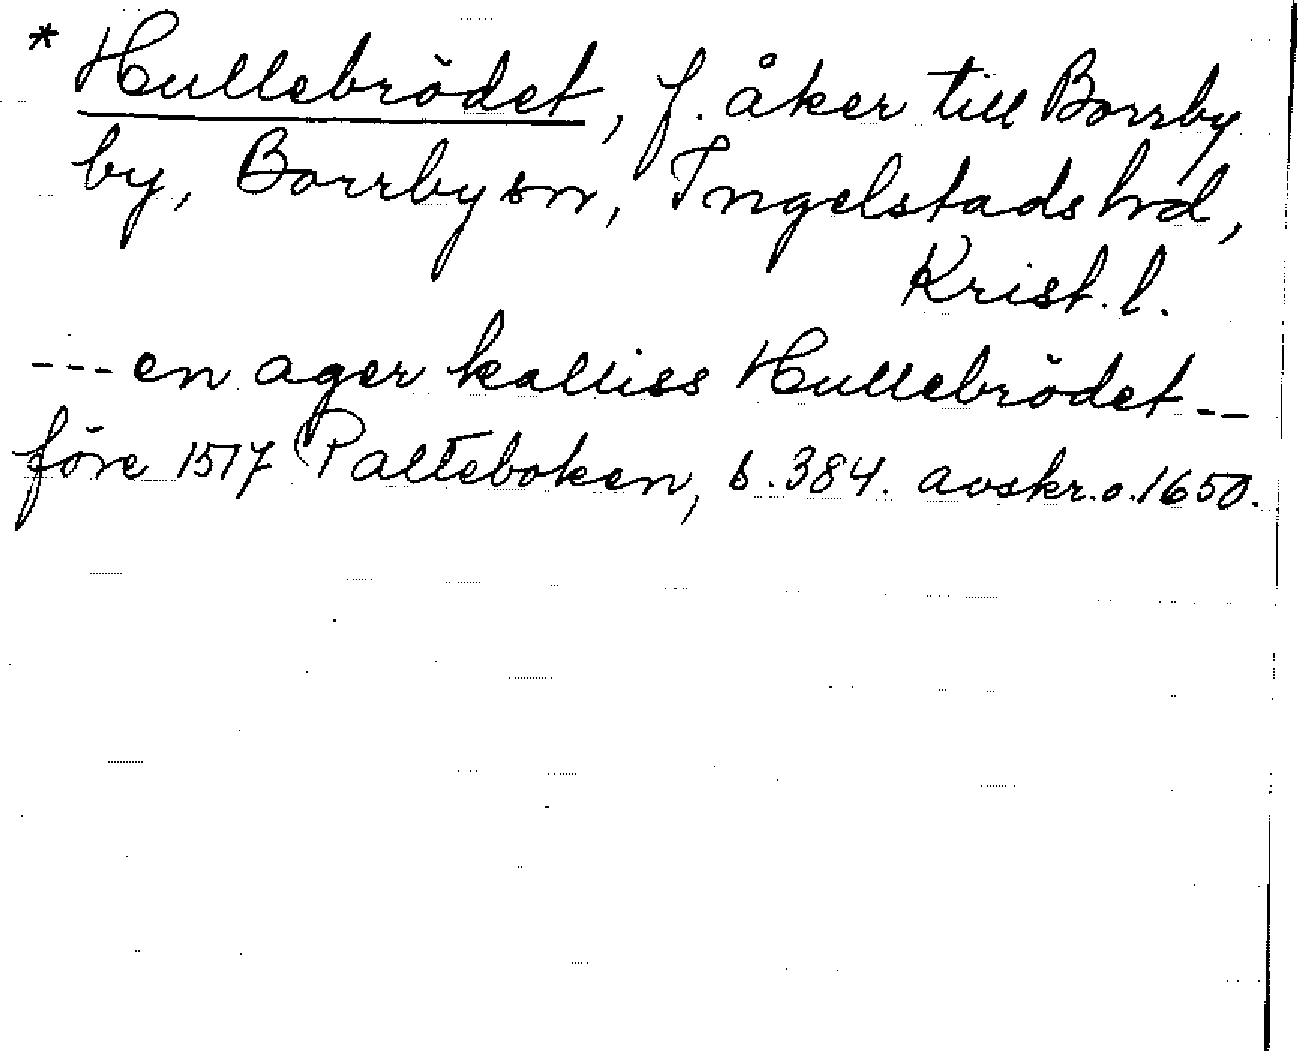 * Hullebrödet, f. åker till Borrby
by, Borrby sn, Ingelstads hrd,
Krist. l.
--- en ager kalliss Hullebrödet --
före 1517 Palteboken, s. 384. avskr. o. 1650.